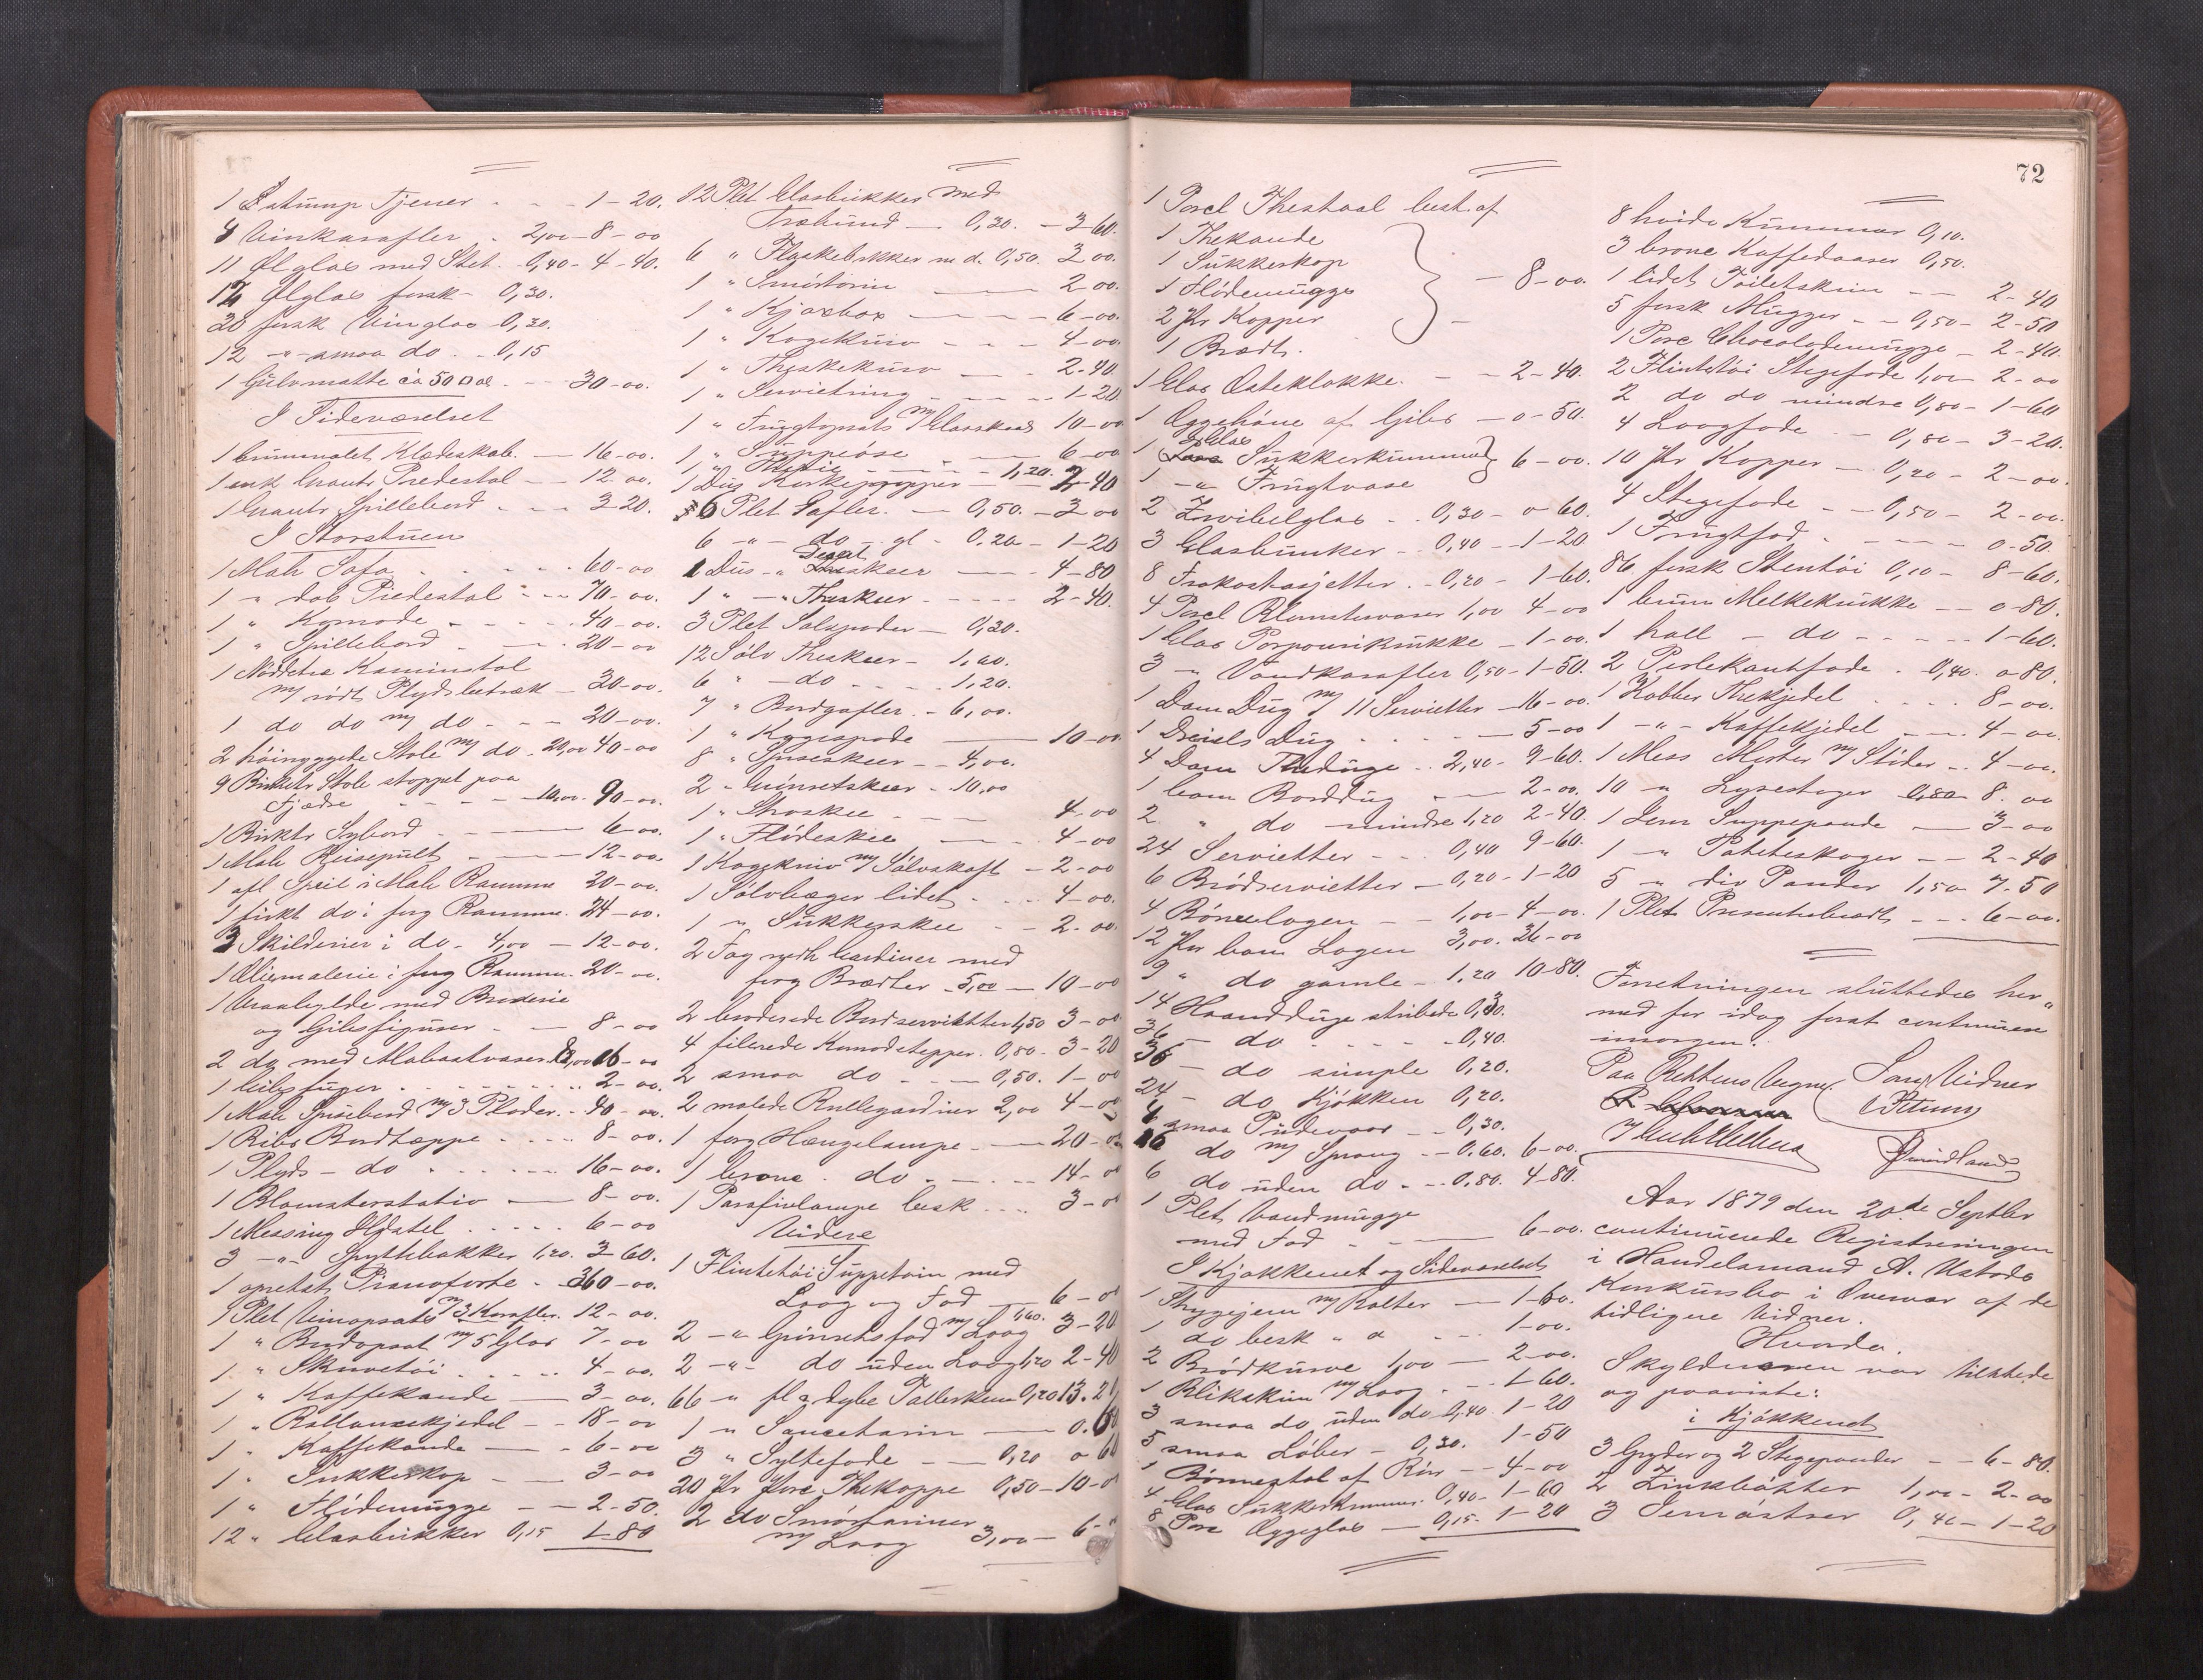 1 Estump Tjener - - - 1-20.
4 Vinkarafler . 2,00 - 8-00
11 Ølglas med Stet - 0,40 - 4-40.
12 Ølglas forsk - 0,30.
20 forsk Vinglas 0,30.
12 -"- smaa do . - 0,15
1 Gulvmatte ca 50 □ al. - - - 30-00.
I Sideværelset
1 brunmalet Klædeskab. - 16-00.
1 enk Piedestal - - 12-00.
1 Spillebord - - - 3-20.
I Storstuen
1 Mah Sofa . . . . . . 60-00
1 " do Piedestal - - - 70-00.
1 " Komode . - - - . 40-00.
1 " Spillebord - - . 20-00
1 Nøddetræ Kaminstol
m/ rødt Plydsbetræk - 30-00.
1 do do m/ do . - - 20-00.
2 høiryggede Stole m/ do . 20,00 40-00
9 Birketr Stole stoppet paa
Fjædre - - - - 10,00 - 90-00.
1 Birktr Sybord . - - 6-00.
1 Mah Reisepult - - - 12-00.
1 afl Speil i Mah Ramme 20-00.
1 firkt do i forg Ramme. 24-00.
3 Skilderier i do - 4,00 - 12-00.
1 Oliemaleri i forg Ramme. 20-00.
1 Vraahylde med Broderie
og Gibsfigurer . - 8-00
2 do med Alabastvaser 8,00 16-00
1 Gibsfigur . . . . . . . . 2-00.
1 Mah Spisebord m/ 3 Plader. - 40-00.
1 Ribs Bordtæppe . . . . 8-00.
1 Plyds - do . . . . . . 16-00.
1 Blomsterstativ - - 8-00.
1 Messing Ildstel . . . . . 6-00
3 -"- Spyttebakker 1,20. 3-60.
1 opretst Pianoforte - 360-00.
1 Plet Vinopsats m/ 3 Karafler. 12-00.
1 " Bordopsat m/ 5 Glas 7-00
1 " Skrivetøi . . . . . 4-00.
1 " Kaffekande - 3-00.
1 " Ballancekjedel - - 18-00
1 " Kaffekande - - 6-00
1 " Sukkerskop - - 3-00
1 " Flødemugge - - 2-50.
12 " Glasbrikker 0,15 1-80
12 Plet Glasbrikker med
Træbund - 0,30. - 3-60.
6 " Flaskebrikker m d. 0,50. 3 00.
1 " Smørterin - - 2 00.
1 " Kjaxbox - - - 6-00.
1 " Kagekurv - - - 4-00.
1 " Theskekurv - - . 2-40
1 " Servietring - - - 1-20
1 " Frugtopsats m/ Glasskaal 10-00
1 " Suppeøse - - - 6-00
1 " Thesie - - - - 1,20.
1 Dus Korkepropper - 2-40
6 Plet Gafler. - 0,50. - 3 00
6 -"- do - gl - 0.20 - 1-20
1 Dus -"- Desert skeer - 4-80
1 " -"- Theskeer - - - - 2-40.
3 Plet Saltspader - 0,20.
12 Sølv Theskeer - 1,60.
6 " - do . . - . 1,20.
7 " Bordgafler. - 6,00.
1 " Kagespade - 10-00
8 " Spiseskeer - - 4,00.
2 - Grønsetskeer - 10,00
1 " Strøskee - - 4-00
1 " Flødeskee - - . 4-00
1 Kagekniv m/ Sølvskaft - 2-00
1 Sølvbæger lidet . - - 4-00.
1 " Sukkerskee - - 2-00
2 Fag rødt Gardiner med
forg Brædter - 5,00 - 10-00
2 broderede Bordservietter 1,50 3-00
4 filerede Komodetepper. 0,80. 3-20
2 smaa do . . - 0,50. 1-00
2 malede Rullegardiner 2,00 4-00
1 forg Hængelampe . - 20-00
1 brone - do . - - . 14-00
1 Parafinlampe besk . . . . 3-00
Videre
1 Flintetøi Suppeterin med
Laag og Fad - 6-00
2 -"- Grønsetsfad m/ Laag 1,60. 3-20
2 -"- do uden Laag 1,20 2-40
66 -" fl & dybe Tallerkener 0,20 13.20
1 -" Sauceterin - - 0.60
3 " Syltefade - - 0,20 0 60
20 Par Porc Thekoppe 0,50 - 10-00
2 do Smørteriner
m/ Laag 3,00 - 6-00
72
1 Porcl Thestaal best. af
1 Thekande
1 Sukkerskop
1 Flødemugge - 8-00.
2 Par Kopper
1 Brædt.
1 Glas Osteklokke. - - 2-40.
1 Æggehøne af Gibs - 0-50.
1 Glas Sukkerkumme 6-00.
1 -"- Frugtvase
2 Zwibelglas - . 0,30 - 0 60.
3 Glasbunker - . 0,40 - 1-20
8 Frokostasjetter . - 0,20 - 1-60.
4 Porcl Blomstervaser 1,00 4-00
1 Glas Porpourikrukke - 1-00.
3 -" Vandkarafler 0,50 - 1-50.
1 Dam Dug m/ 11 Servietter - 16-00.
1 Dreiels Dug . . . . - 5-00
4 Dam Theduge . . 2,40 - 9-60.
1 bom Borddug - - 2-00.
2 " do mindre 1,20 2-40.
24 Servietter - . . 0,40 9-60.
6 Brødservietter - 0,20 - 1-20
4 Børnelagen - - 1,00 - 4-00.
12 Par bom Lagen 3,00. 36-00
9 " do gamle - 1,20 10-80.
14 Haandduge stribede 0,30.
36 - do . - - - - 0,40.
36 - do simple 0,20.
24 - do Kjøkken 0,20.
4 smaa Pudevaar - - 0,30.
10 do m/ Sprang - - 0.60. 6-00.
6 do uden do . - - 0.80. 4-80.
1 Plet Vandmugge
med Fad . . - 6-00.
I Kjøkkenet og Sideværelset
1 Strygejern m/ Bolter - 1-60.
1 do besk " a . . . 1-00.
2 Brødkurve 1,00 - 2-00.
1 Blikskrin m/ Laag . - . 1-60.
3 smaa do uden do 0,40. 1-20
5 smaa Løber - 0,30. 1-50
1 Børnestol af Rør - - 4-00
4 Glas Sukkerkummer. 0,40 - 1-60
8 Porc Æggeglas - 0,15. 1-20
8 hvide Kummer 0,10.
3 brone Kaffedaaser 0,50.
1 lidet Toiletskrin - - 2-40
5 forsk Mugger - - 0,50 - 2-50
1 Porc Chocolademugge - 2-40.
2 Flintetøi Stegefade 1,00 2-00
2 do do mindre 0,80 - 1-60
4 Laagfade . - 0,80 - 3-20.
10 Par Kopper - . 0,20 - 2-00.
4 Stegefade . - - 0,50 - 2-00.
1 Frugtfad . - - - - 0-50.
86 forsk Stentøi 0,10 - 8-60.
1 brun Melkekrukke - - 0-80.
1 holl - do - - - - - 1-60.
2 Perlekantfade . 0,40. 0 80.
1 Kobber Thekjedel . . . . 8-00.
1 -"- Kaffekjedel - - . 4-00.
1 Mess Morter m/ Støder - . 4-00.
10 " Lysestager 0,80 8. 00
1 Jern Suppepande - 3-00
1 -" Poteteskoger - - 2-40
5 -" div Pander 1,50 7-50
1 Plet Presenteerbrædt - - - 6-00.
Forretningen sluttedes her„
med for idag forat continuere
imorgen.
Paa Rettens Vegne. Som Vidner
Aar 1879 den 20de Septbr
continuerede Registreringen
i Handelsmand A. Ustads
Konkursbo i Overvær af de
tidligere Vidner.
Hvorda.
Skyldneren var tilstede
og paaviste:
i Kjøkkenet
3 Gryder og 2 Stegepander - - 6-80.
2 Zinkbøtter 1,00 - 2-00
3 Jernøstser 0,40 - 1-20